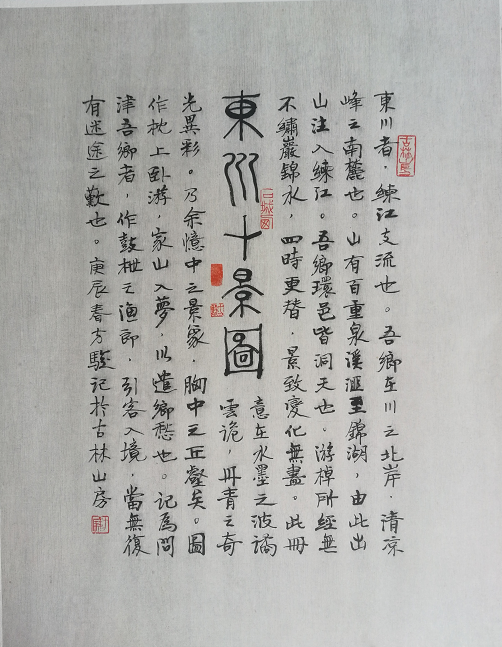 東川者，練江支流也。吾鄉在川之北岸，清凉
峰之南麓也。山有百重泉溪滙至錦湖，由此出
山注入練江。吾鄉環邑皆洞天也。游棹所經無
不繡巖錦水，四時更替，景致變化無盡。此冊
東川十景圖
意在水墨之波譎
雲詭，丹青之奇
光異彩。乃余憶中之景象，胸中之丘壑矣。圖
作枕上卧游，家山入夢，以遣鄉愁也。記爲問
津吾鄉者，作鼓枻之漁郎，引客入境，當無復
有迷途之歎也。庚辰春方駿記於古林山房